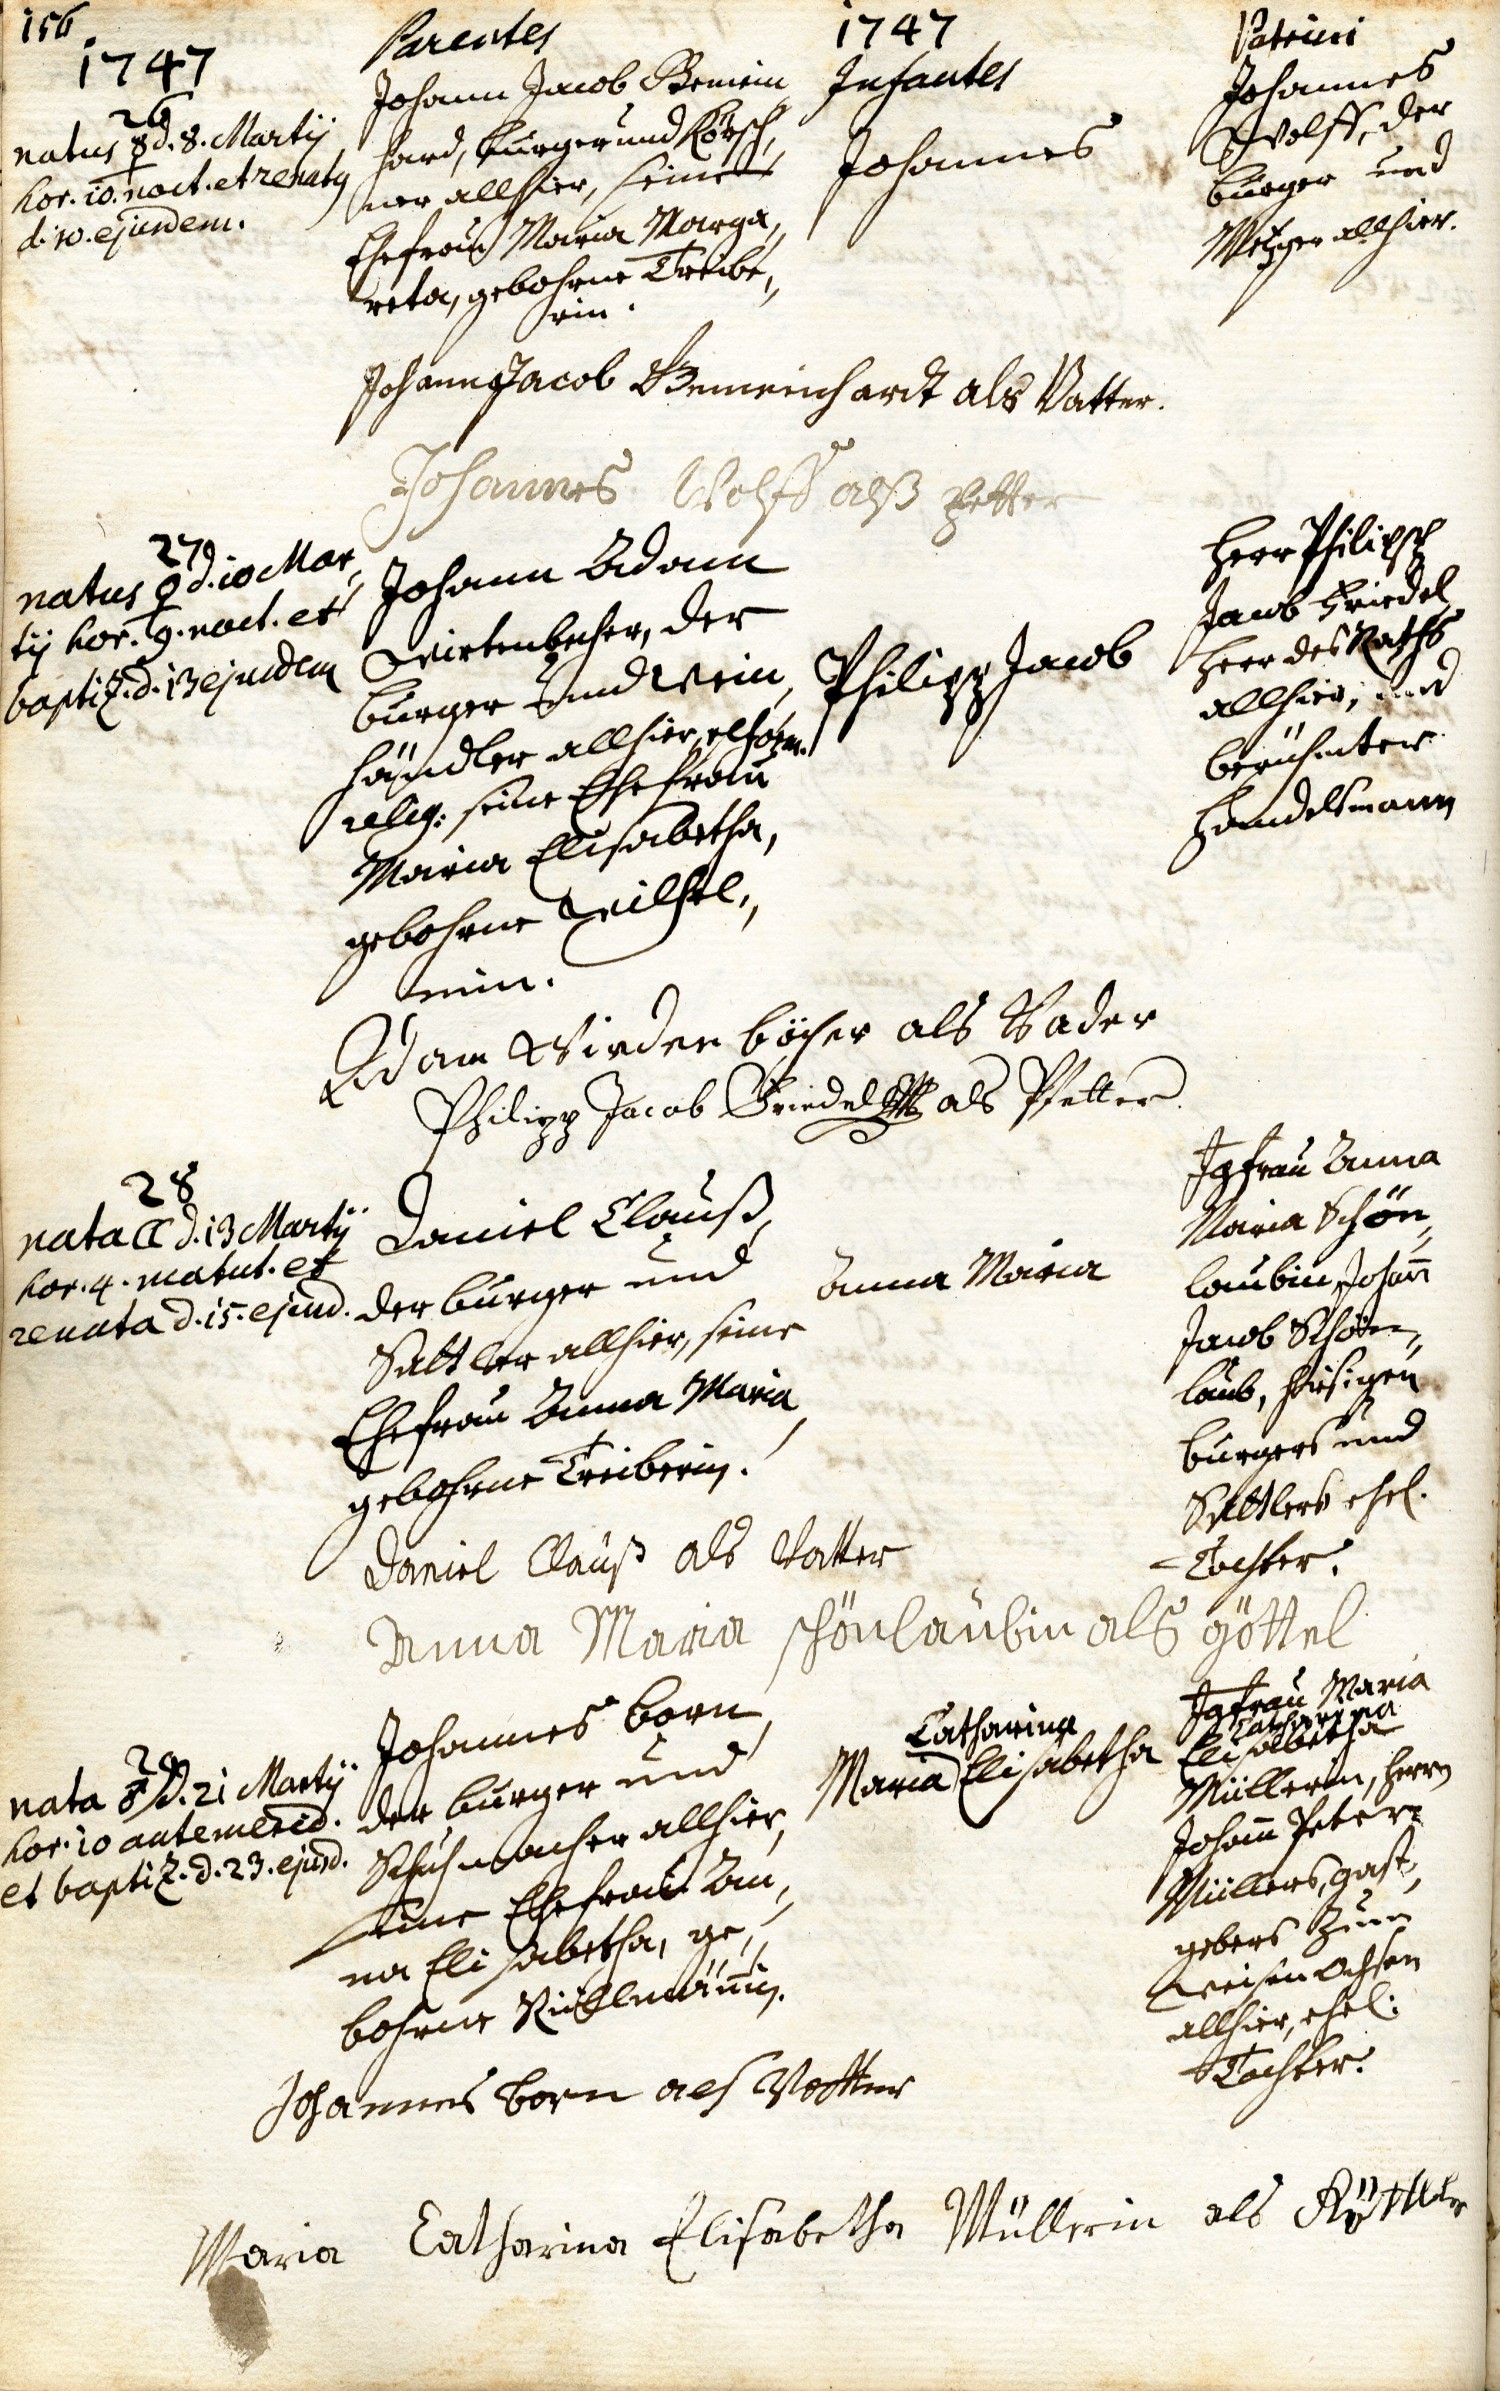 156
1747
Parentes
1747
Infantes
Patrini
26
natus ☿ d. 8. Martij
hor. 10. noct. et renatq
d. 10. ejusdem.
Johann Jacob Bemein
hard, burger und Körsch,,
ner allhier, seine
Ehefrau Maria Marga,,
reta, gebohrne Treibe,,
rin.
Johannes
Johannes
Wolff, der
burger und
Metzger allhier.
Johann Jacob Bemeinhardt als Vatter.
Johannes Wolff alß petter
27
natus ♀ d. 10 Mar,,
tij hor. 9. noct. et
baptiz. d. 13 ejusdem
Johann Adam
Wirtenbecher, der
burger und Wein,,
händler allhier,
relig: seine Ehefrau
Maria Elisabetha,
gebohrne Weilhel,,
min.
Philipp Jacob
Herr Philipp
Jacob Friedel
Herr des Raths
allhier, und
berühmter
Handelsmann
Adam Wirden böcher als Vader
Philipp Jacob Friedel als Pfetter
28
nata ☾ d. 13 Martij
hor. 4. matut. et
renata d. 15. ejusd.
Daniel Clauß,
der burger und
Sattler allhier, seine
Ehefrau Anna Maria
gebohrne Treiberin.
Anna Maria
Jgfrau Anna
Maria Schön,,
laubin, Johann
Jacob Schön,,
laub, hiesigen
burgers und
Sattlers ehel.
Tochter.
Daniel Clauß als Vatter
Anna Maria schönlaubin als göttel
29
nata ♂ d. 21 Martij
hor. 10 antemerid.
et baptiz. d. 23. ejusd.
Johannes born,
der burger und
Schuhmacher allhier,
seine Ehefrau An,,
na Elisabetha, ge,,
bohrne Kühlmännin.
Catharina
Maria Elisabetha
Jgfrau Maria
Catharina
Elisabetha
Müllerin, Herrn
Johann Peter
Müllers, gast,,
gebers zum
weisen Ochsen
allhier, ehel:
Tochter.
Johannes born als Vatter
Maria Catharina Elisabetha Müllerin als